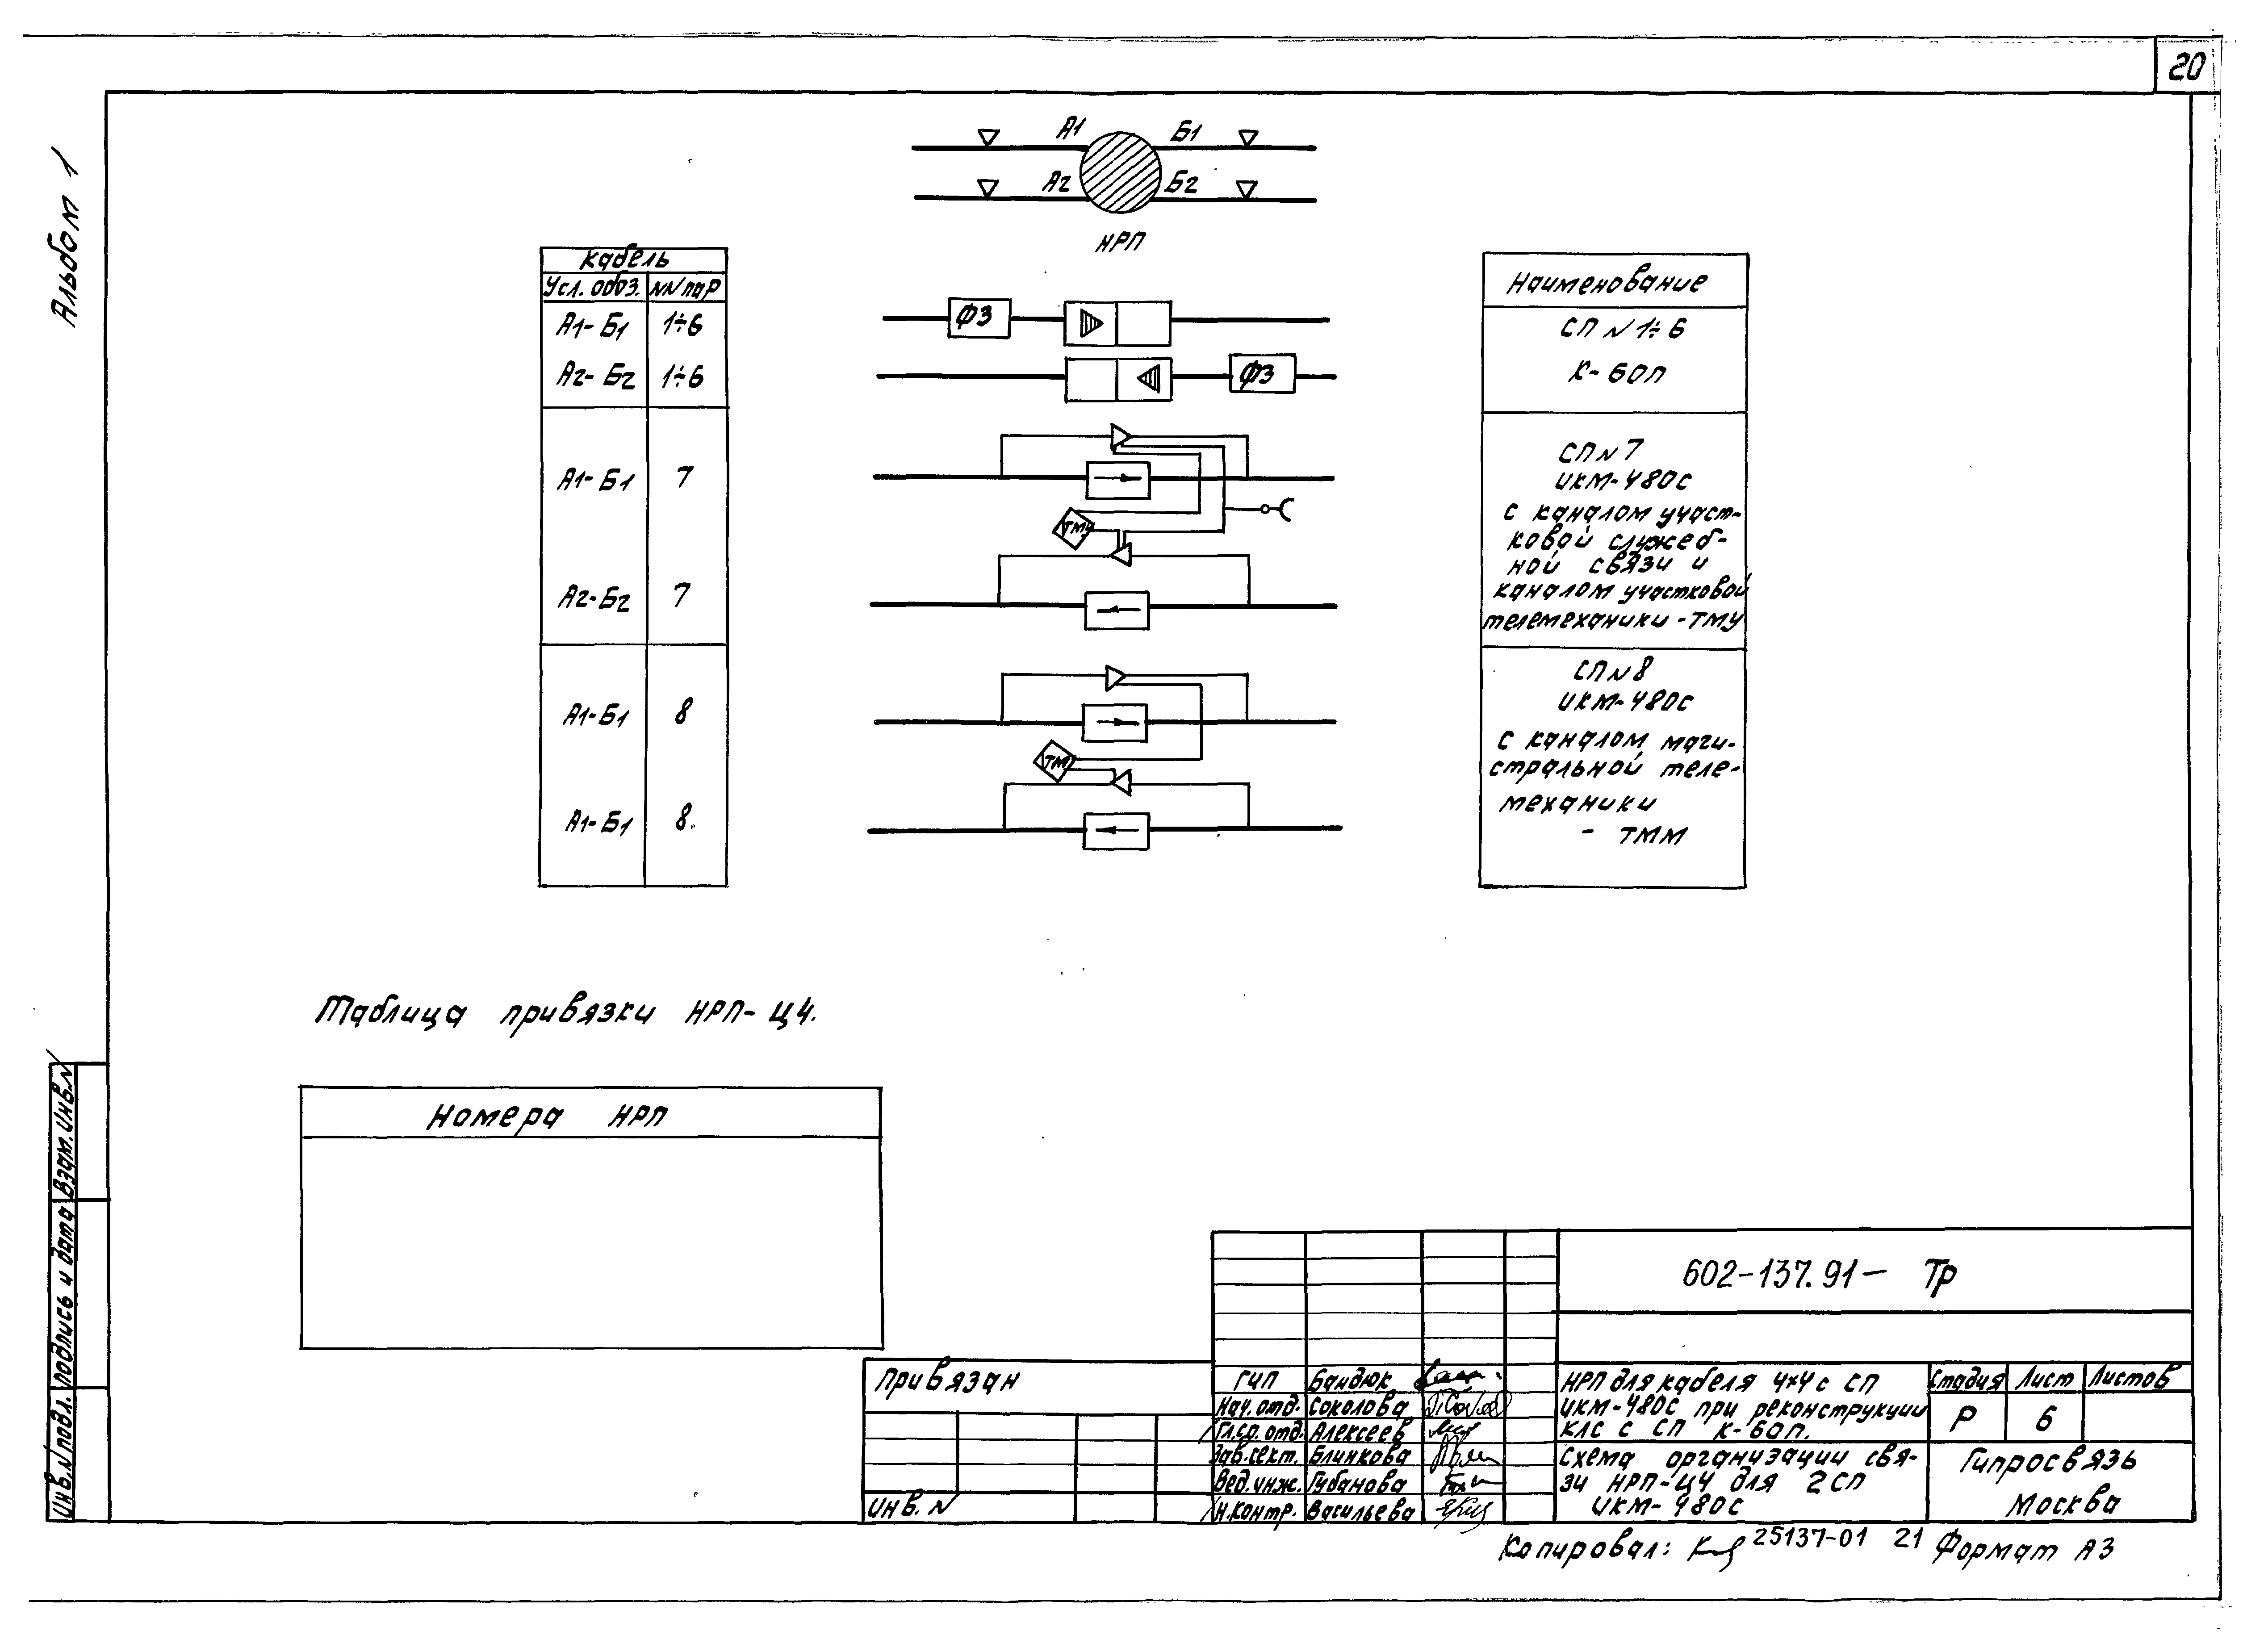 20
Альбом 1
А1 Б1
А2 Б2
НРП
кабель
Усл. обоз. NN пар
А1-Б1 1÷6
А2-Б2 1÷6
А1-Б1 7
А2-Б2 7
А1-Б1 8
А1-Б1 8
ФЗ
ФЗ
ТМУ
ТМ
Наименование
СП N 1÷6
К-60п
СП N 7
ИКМ-480С
с каналом участ-
ковой служеб-
ной связи и
каналом участковой
телемеханики - ТМУ
СП N 8
ИКМ-480С
с каналом маги-
стральной теле-
механики
- ТММ
Таблица привязки НРП-Ц4.
Номера НРП
Взам. инв. N
Подпись и дата
Инв. N подл.
Привязан
Инв. N
ГИП Бандюк
Нач. отд. Соколова
Гл. сп. отд. Алексеев
Зав. сект. Блинкова
Вед. инж. Губанова
Н. контр. Васильева
602-137.91- Тр
НРП для кабеля 4×4 с СП
ИКМ-480С при реконструкции
КЛС с СП К-60п.
Стадия Лист Листов
Р 6
Схема организации свя-
зи НРП-Ц4 для 2СП
ИКМ-480С
Гипросвязь
Москва
Копировал: 25137-01 21 Формат А3